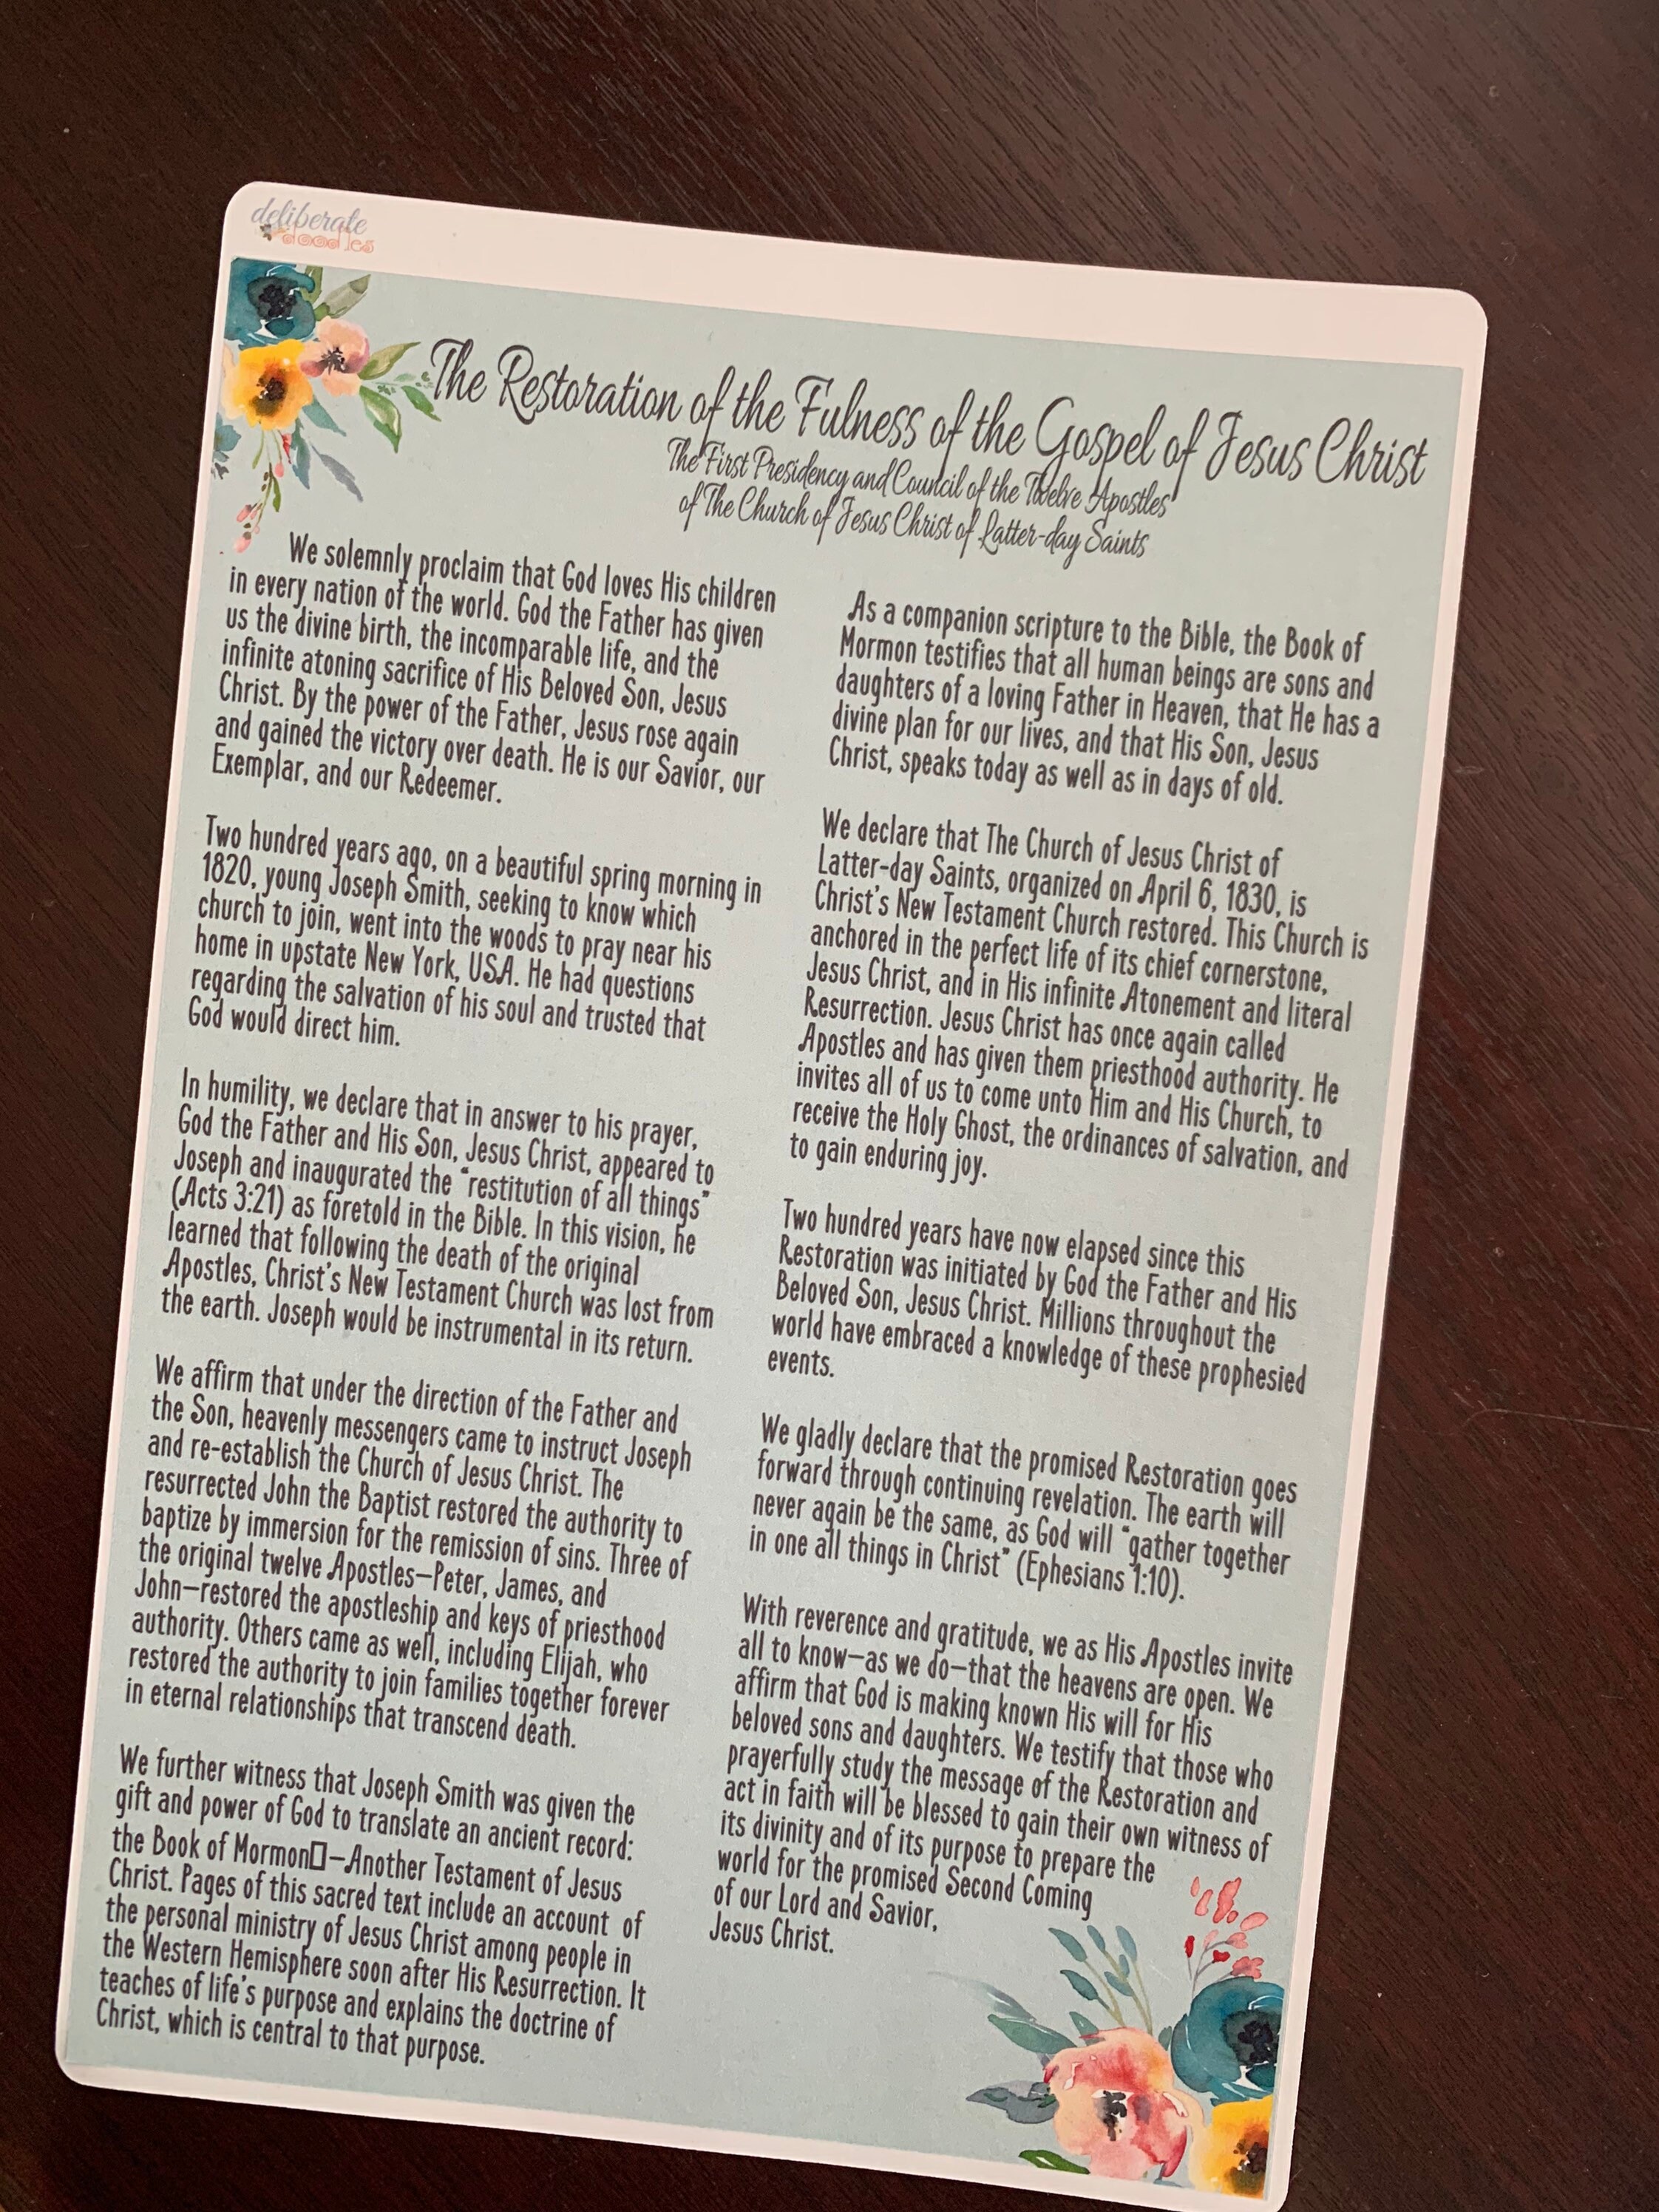 deliberate
doodles
The Restoration of the Fulness of the Gospel of Jesus Christ
The First Presidency and Council of the Twelve Apostles
of The Church of Jesus Christ of Latter-day Saints
We solemnly proclaim that God loves His children
in every nation of the world. God the Father has given
us the divine birth, the incomparable life, and the
infinite atoning sacrifice of His Beloved Son, Jesus
Christ. By the power of the Father, Jesus rose again
and gained the victory over death. He is our Savior, our
Exemplar, and our Redeemer.
Two hundred years ago, on a beautiful spring morning in
1820, young Joseph Smith, seeking to know which
church to join, went into the woods to pray near his
home in upstate New York, USA. He had questions
regarding the salvation of his soul and trusted that
God would direct him.
In humility, we declare that in answer to his prayer,
God the Father and His Son, Jesus Christ, appeared to
Joseph and inaugurated the “restitution of all things”
(Acts 3:21) as foretold in the Bible. In this vision, he
learned that following the death of the original
Apostles, Christ’s New Testament Church was lost from
the earth. Joseph would be instrumental in its return.
We affirm that under the direction of the Father and
the Son, heavenly messengers came to instruct Joseph
and re-establish the Church of Jesus Christ. The
resurrected John the Baptist restored the authority to
baptize by immersion for the remission of sins. Three of
the original twelve Apostles—Peter, James, and
John—restored the apostleship and keys of priesthood
authority. Others came as well, including Elijah, who
restored the authority to join families together forever
in eternal relationships that transcend death.
We further witness that Joseph Smith was given the
gift and power of God to translate an ancient record:
the Book of Mormon▯—Another Testament of Jesus
Christ. Pages of this sacred text include an account of
the personal ministry of Jesus Christ among people in
the Western Hemisphere soon after His Resurrection. It
teaches of life’s purpose and explains the doctrine of
Christ, which is central to that purpose.
As a companion scripture to the Bible, the Book of
Mormon testifies that all human beings are sons and
daughters of a loving Father in Heaven, that He has a
divine plan for our lives, and that His Son, Jesus
Christ, speaks today as well as in days of old.
We declare that The Church of Jesus Christ of
Latter-day Saints, organized on April 6, 1830, is
Christ’s New Testament Church restored. This Church is
anchored in the perfect life of its chief cornerstone,
Jesus Christ, and in His infinite Atonement and literal
Resurrection. Jesus Christ has once again called
Apostles and has given them priesthood authority. He
invites all of us to come unto Him and His Church, to
receive the Holy Ghost, the ordinances of salvation, and
to gain enduring joy.
Two hundred years have now elapsed since this
Restoration was initiated by God the Father and His
Beloved Son, Jesus Christ. Millions throughout the
world have embraced a knowledge of these prophesied
events.
We gladly declare that the promised Restoration goes
forward through continuing revelation. The earth will
never again be the same, as God will “gather together
in one all things in Christ” (Ephesians 1:10).
With reverence and gratitude, we as His Apostles invite
all to know—as we do—that the heavens are open. We
affirm that God is making known His will for His
beloved sons and daughters. We testify that those who
prayerfully study the message of the Restoration and
act in faith will be blessed to gain their own witness of
its divinity and of its purpose to prepare the
world for the promised Second Coming
of our Lord and Savior,
Jesus Christ.